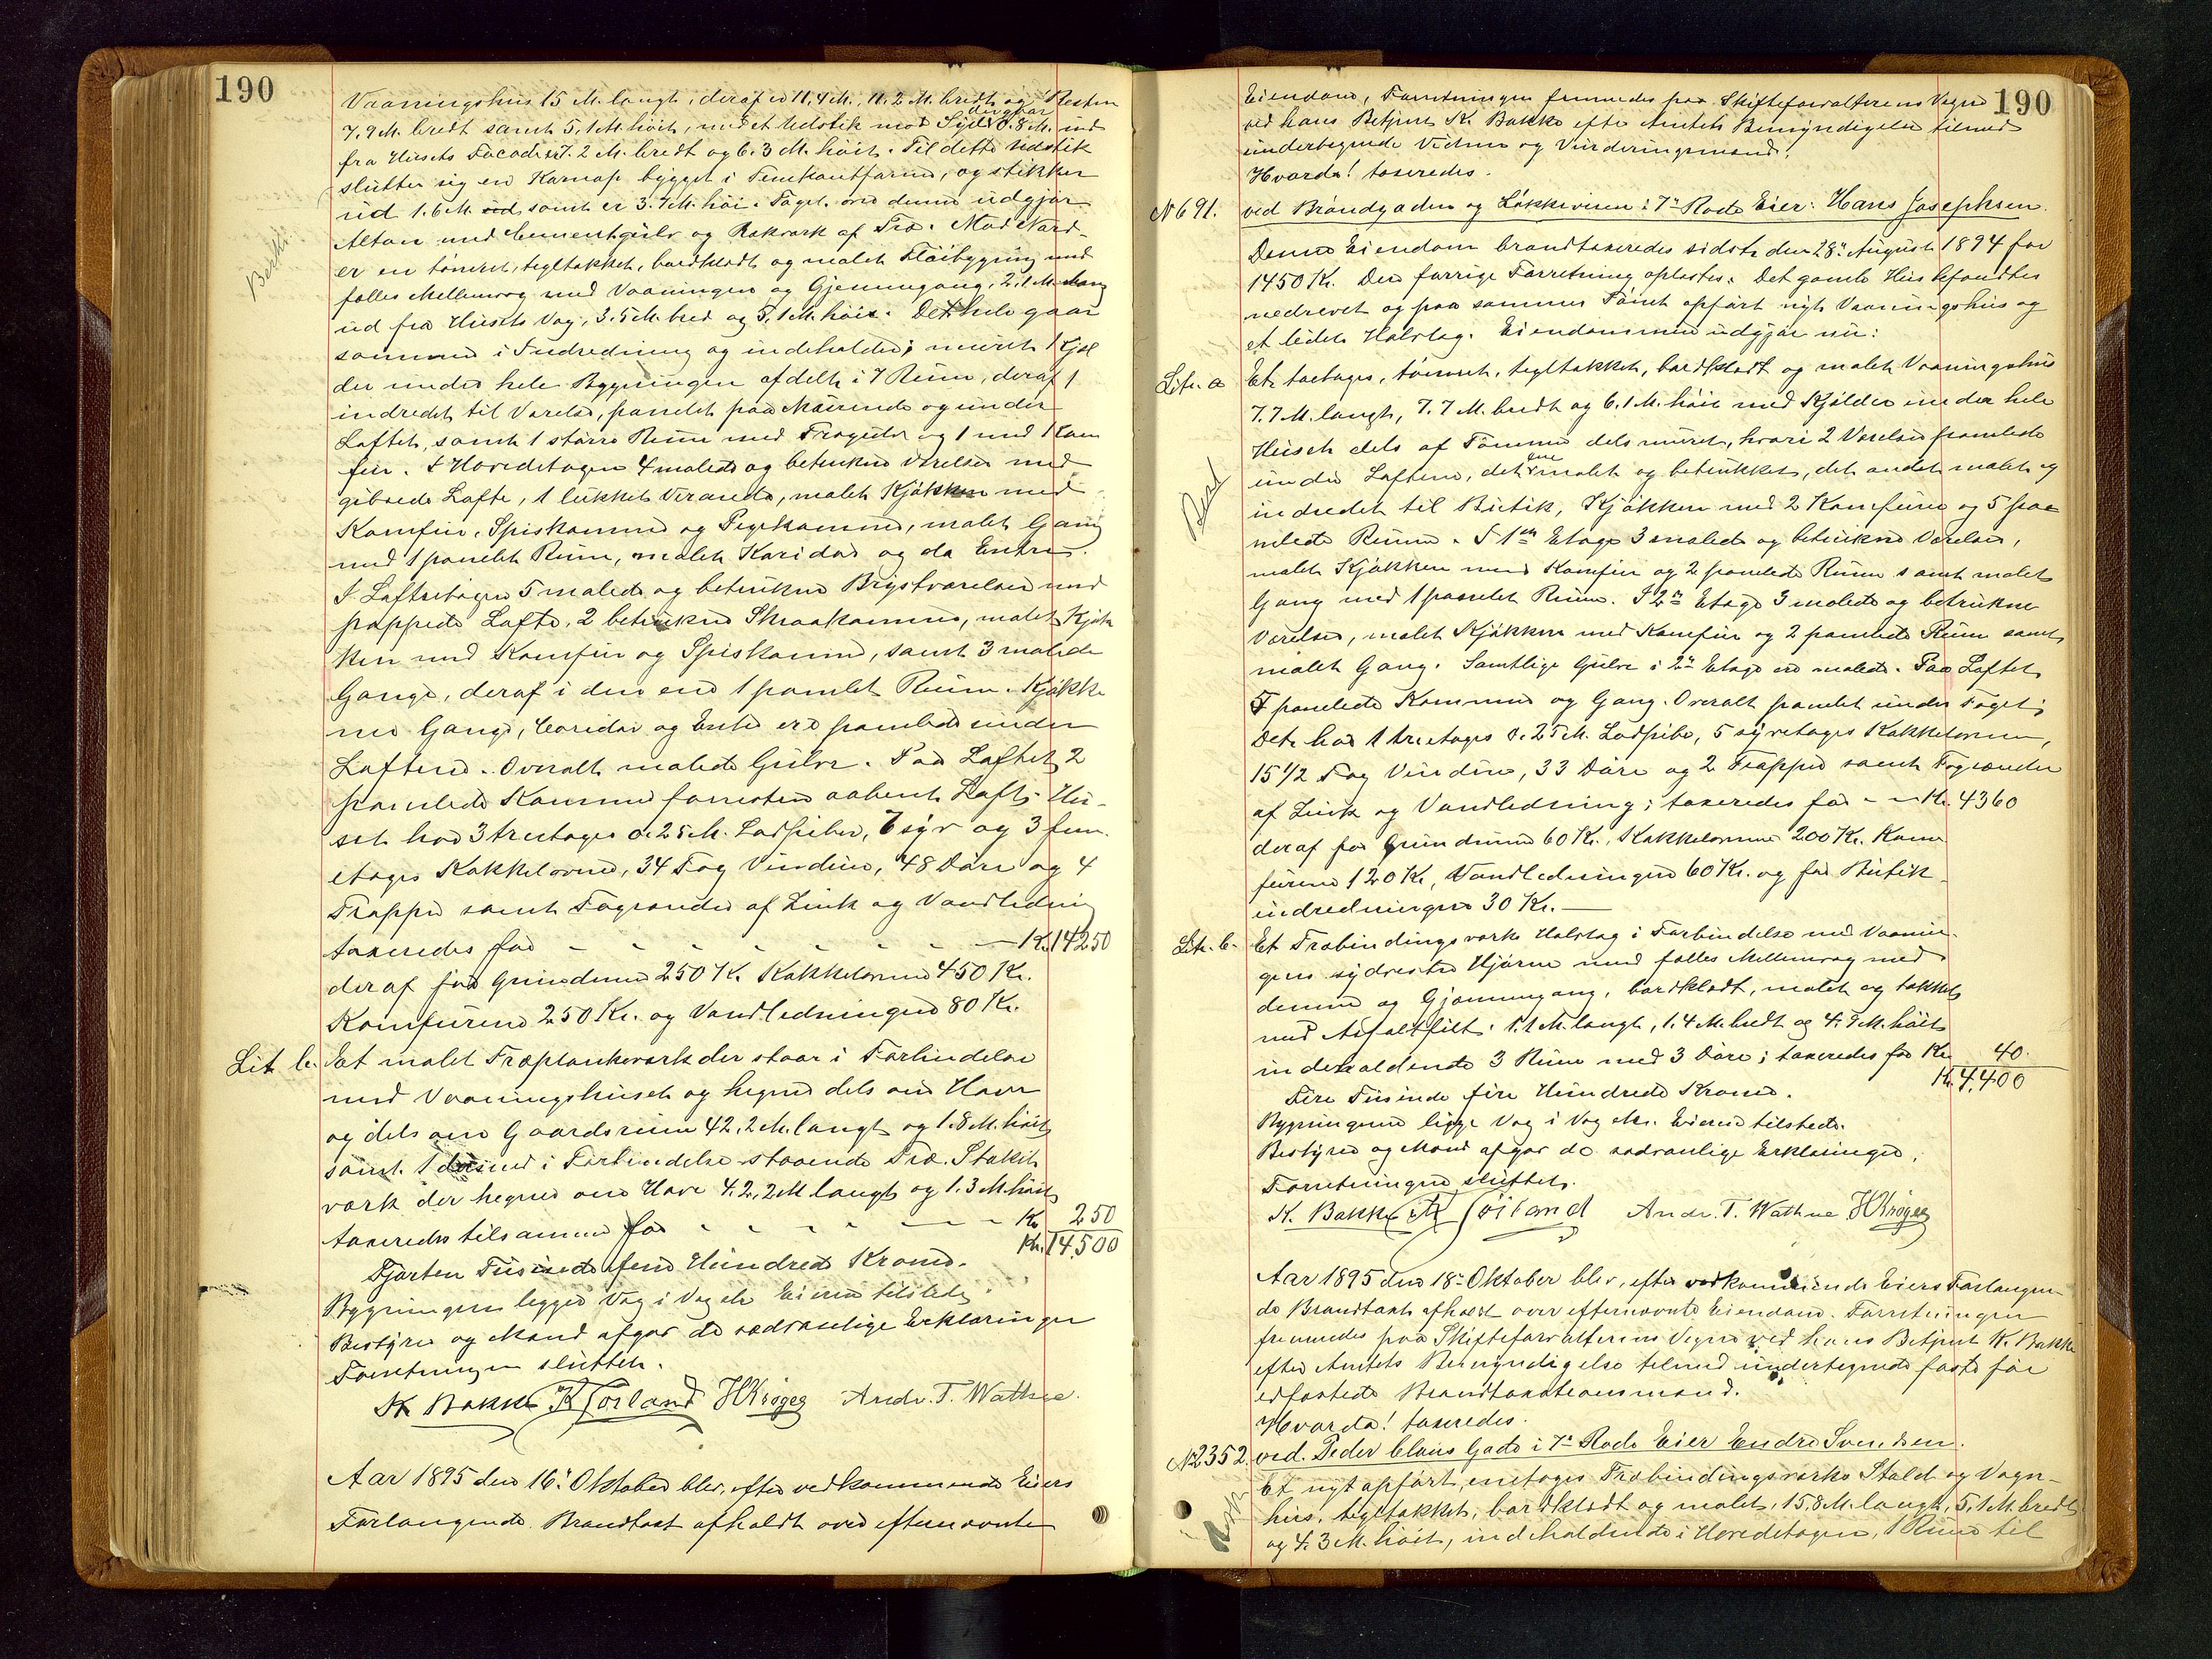 190
Vaaningshus 15 M. langt, deraf er 11,4 M., 11,2 M. bredt og Resten
7,9 M. bredt samt 5,1 M. høit, med et Udstik mod Syd, der gaar 0,8 M. ud
fra Husets Facade, er 7,2 M. bredt og 6,3 M. høit. Til dette Udstik
slutter sig en Karnap bygget i Femkantform, og stikker
ud 1.6 M. ud samt er 3.7 M. høi. Taget over denne udgjør
Altan med Cementgulv og Rækværk af Træ. Mod Nord
er en tømret, tegltækket, bordklædt og malet Fløibygning med
fælles Mellemvæg med Vaaningen og Gjennemgang, 2,1 M. lang
ud fra Husets Væg, 3.5 M. bred og 3,1 M. høi. Det hele gaar
sammen i Indredning og indeholder: muret Kjæl
der under hele Bygningen afdelt i 7 Rum, deraf 1
indredet til Værelse, panelet paa Murene og under
Loftet, samt 1 større Rum med Trægulv og 1 med Kom
fur. I Hovedetagen 4 malede og betrukne Værelser med
gibsede Lofte, 1 lukket Veranda, malet Kjøkken med
Komfur, Spiskammer og Pigekammer, malet Gang
med 1 panelet Rum, malet Koridor og do Entre.
I Loftsetagen 5 malede og betrukne Brystværelser med
pappede Lofte, 2 betrukne Skraakammer, malet Kjøk
ken med Komfur og Spiskammer, samt 3 malede
Gange, deraf i den ene 1 panelet Rum. Kjøkke
ne Gange, Coridor og Entre ere panelede under
Loftene. Overalt malede Gulve. Paa Loftet 2
panelede Kammer forresten aabent Loft. Hu-
set har 3 treetages 0.25 M. Lodpiber, 7 syv og 3 fem
etages Kakkelovne, 34 Fag Vinduer, 48 Døre og 4
Trapper samt Tagrender af Zink og Vandledning
taxeredes for - - - - - - - - Kr. 14250
deraf for Grundmur 250 Kr. Kakkelovne 450 Kr.
Komfurene 250 Kr. og Vandledningen 80 Kr.
Lit b. Et malet Træplankeværk der staar i Forbindelse
med Vaaningshuset og hegner dels om Have
og dels om Gaardsrum 42,2 M. langt og 1.8 M. høit
samt 1 dermed i Forbindelse staaende Træ-Stakit
værk der hegner om Have 42,2 M langt og 1.3 M. høit
taxeredes tilsammen for - - - - - Kr. 250
Kr. 14,500
Fjorten Tusinde fem Hundrede Kroner.
Bygningerne ligger Væg i Væg etc Eieren tilstede.
Bestyrer og Mænd afgav de sædvanlige Erklæringer
Forretningen sluttet.
K. Bakke K Torland HKrøger Andr. T. Wathne.
Aar 1895 den 16' Oktober blev, efter vedkommende Eiers
Forlangende Brandtaxt afholdt over efternævnte
190
Eiendom, Forretningen fremmedes paa Skifteforvalterens Vegne
ved hans Betjent K. Bakke efter Amtets Bemyndigelse tilmed
undertegnede Vidner og Vurderingsmænd.
Hvorda! taxeredes.
N 691. ved Brandgaden og Løkkeveien i 7' Rode Eier: Hans Josephsen.
Denne Eiendom brandtaxeredes sidste den 28' August 1894 for
1450 Kr. Den forrige Forretning oplæstes. Det gamle Hus befandtes
nedrevet og paa sammes Tomt opført nyt Vaaningshus og
et lidet Halvtag. Eiendommen udgjør nu:
Litr. a Et toetages, tømret, tegltækket, bordklædt og malet Vaaningshus
7.7 M. langt, 7.7 M. bredt og 6.1 M. høit med Kjælder under hele
Huset dels af Tømmer dels muret, hvori 2 Værelser panelede
under Loftene, det ene malet og betrukket, det andet malet og
indredet til Butik, Kjøkken med 2 Komfurer og 5 pa
nelede Rum. I 1ste Etage 3 malede og betrukne Værelser,
malet Kjøkken med Komfur og 2 panelede Rum samt malet
Gang med 1 panelet Rum. I 2' Etage 3 malede og betrukne
Værelser, malet Kjøkken med Komfur og 2 panelede Rum samt
malet Gang. Samtlige Gulve i 2' Etage ere malede. Paa Loftet
7 panelede Kammer og Gang. Overalt panelet under Taget;
Det har 1 treetages 0.25 M. Lodpibe, 5 syvetages Kakkelovne,
15 1/2 Fag Vinduer, 33 Døre og 2 Trapper samt Tagrender
af Zink og Vandledning; taxeredes for - - Kr. 4360
deraf for Grundmur 60 Kr., Kakkelovne 200 Kr. Kom
furene 120 Kr, Vandledningen 60 Kr. og for Butik-
indredningen 30 Kr.
Litr. b. Et Træbindingsværks Halvtag i Forbindelse med Vaanin-
gens sydvestre Hjørne med fælles Mellemvæg med
denne og Gjennemgang, bordklædt, malet og tækket
med Asfaltfilt. 1.1 M. langt, 1.4 M. bredt og 4.9 M. høit
indeholdende 3 Rum med 3 Døre; taxeredes for Kr 40.
Kr. 4,400
Fire Tusinde fire Hundrede Kroner.
Bygningerne ligge Væg i Væg etc. Eieren tilstede.
Bestyrer og Mænd afgav de sædvanlige Erklæringer.
Forretningen sluttet.
K. Bakke K Torland Andr. T. Wathne HKrøger
Aar 1895 den 18' Oktober blev, efter vedkommende Eiers Forlangen-
de Brandtaxt afholdt over efternævnte Eiendom. Forretningen
fremmedes paa Skifteforvalterens Vegne ved hans Betjent K. Bakke
efter Amtets Bemyndigelse tilmed undertegnede faste for
edfæstede Brandtaxationsmænd.
Hvorda! taxeredes.
N 2352. ved Peder Claus Gade i 7' Rode Eier Endre Svendsen.
Et nyt opført, enetages Træbindingsværks Stald og Vogn-
hus, tegltækket, bordklædt og malet, 15,8 M. langt, 5,1 M. bredt
og 4.3 M. høit, indeholdende i Hovedetagen, 1 Rum til